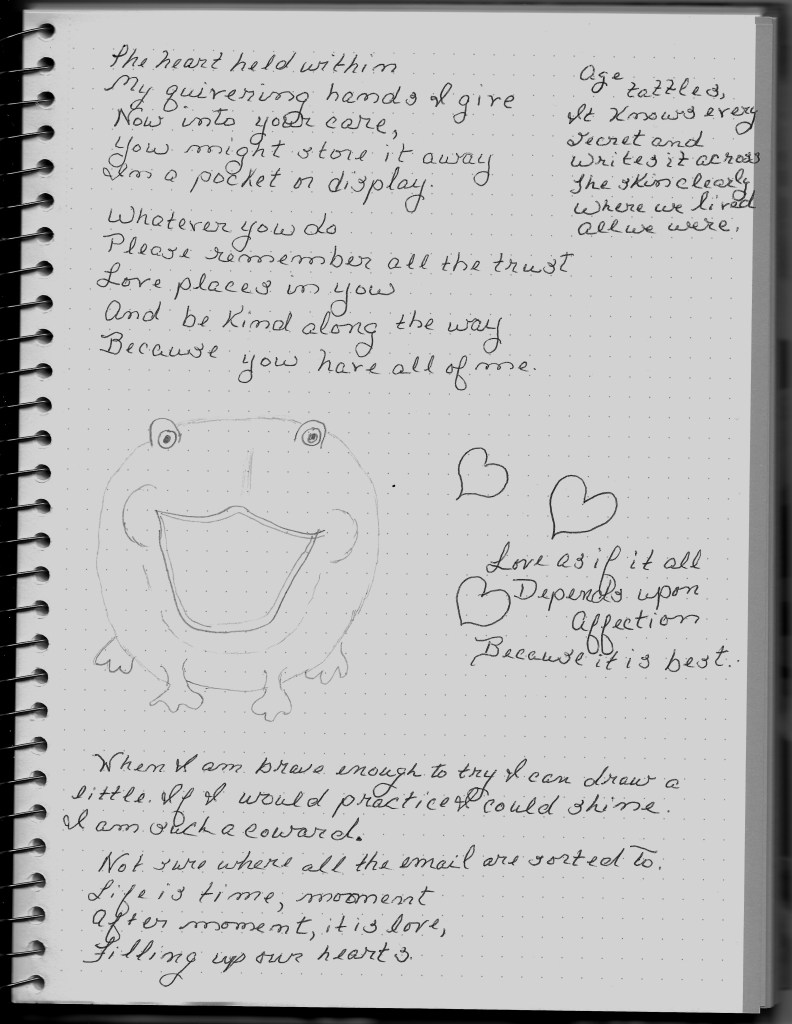 The heart held within
My quivering hands I give
Now into your care,
You might store it away
In a pocket or display.
Whatever you do
Please remember all the trust
Love places in you
And be kind along the way
Because you have all of me.
Age
tattles,
It knows every
secret and
writes it across
the skin clearly
where we lived
all we were.
Love as if it all
Depends upon
Affection
Because it is best.
When I am brave enough to try I can draw a
little. If I would practice I could shine.
I am such a coward.
Not sure where all the email are sorted to.
Life is time, mooment
After moment, it is love,
Filling up our hearts.